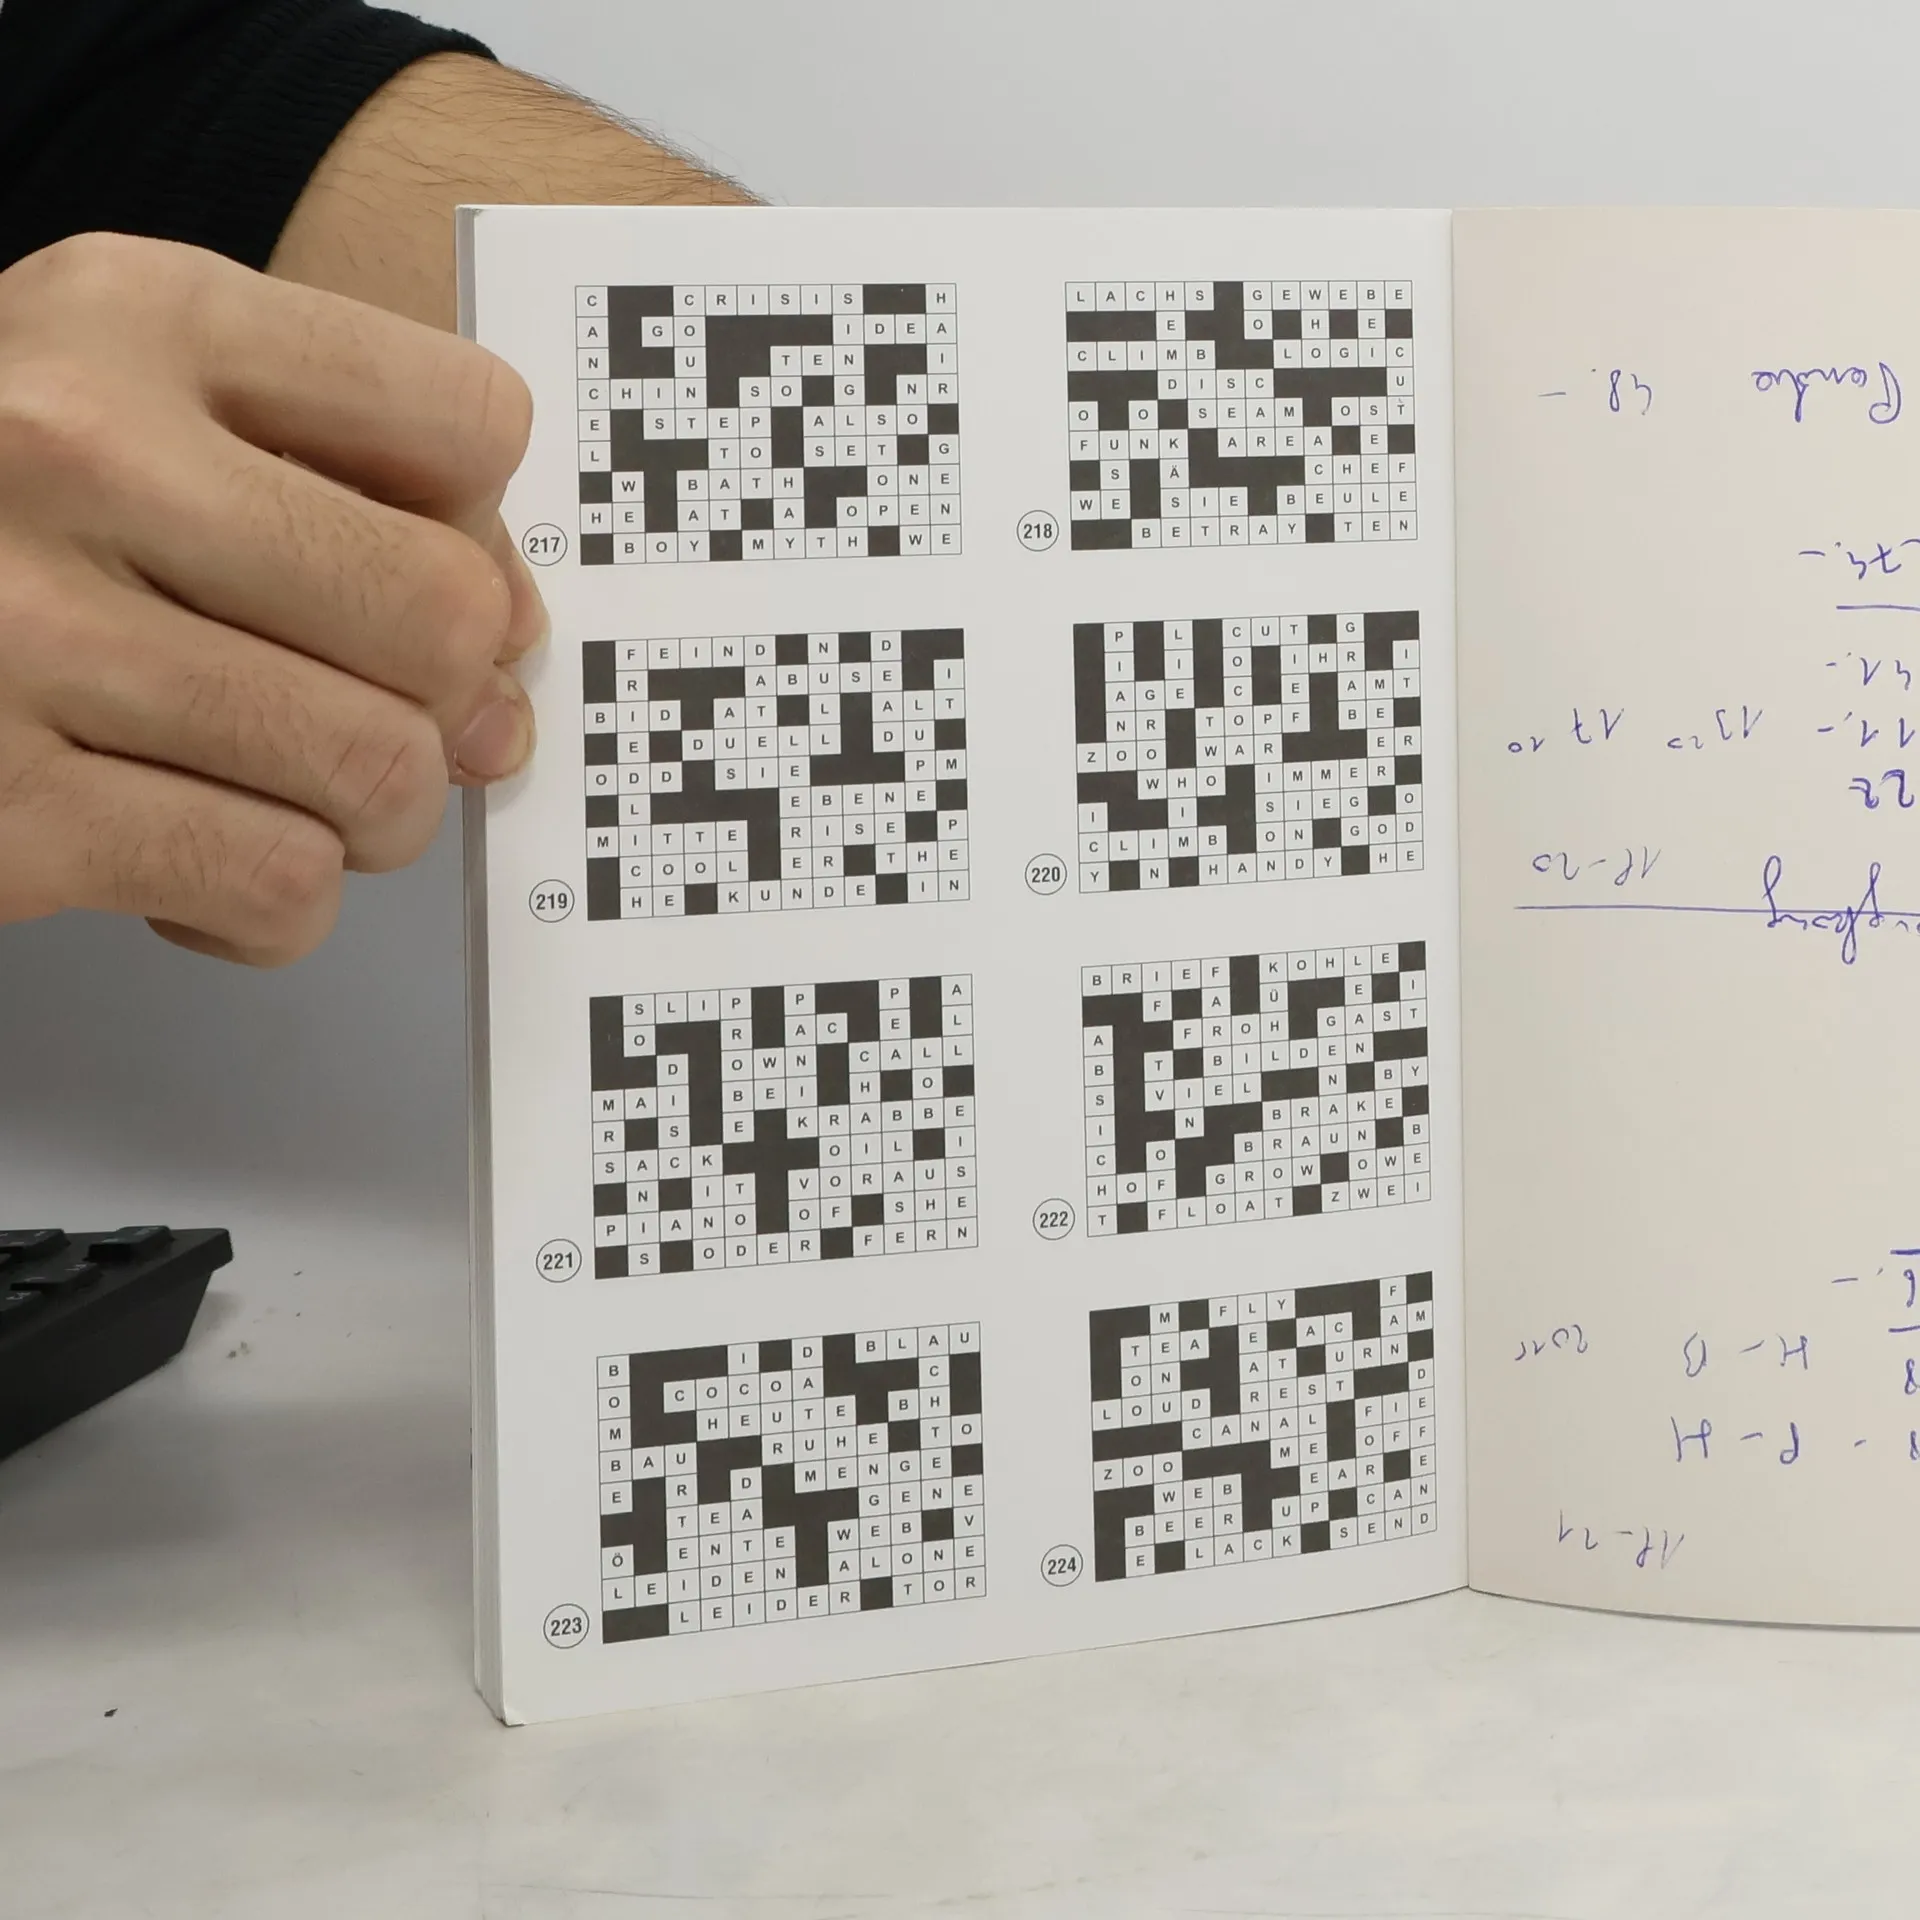 C CRISIS H
A GO IDEA
N U TEN I
CHIN SO G NR
E STEP ALSO
L TO SET G
W BATH ONE
HE AT A OPEN
BOY MYTH WE
217
LACHS GEWEBE
E O H E
CLIMB LOGIC
DISC U
O O SEAM OST
FUNK AREA E
S Ä CHEF
WE SIE BEULE
BETRAY TEN
218
FEIND N D
R ABUSE I
BID AT L ALT
E DUELL DU
ODD SIE PM
L EBENE
MITTE RISE P
COOL ER THE
HE KUNDE IN
219
P L CUT G
I I O IHR I
AGE C E AMT
NR TOPF BE
ZOO WAR ER
WHO IMMER
I I SIEG O
CLIMB ON GOD
Y N HANDY HE
220
SLIP P P A
O R AC E L
D OWN CALL
MAI BEI H O
R S E KRABBE
SACK OIL I
N IT VORAUS
PIANO OF SHE
S ODER FERN
221
BRIEF KOHLE
F A Ü E I
A FROH GAST
B T BILDEN
S VIEL N BY
I N BRAKE
C O BRAUN B
HOF GROW OWE
T FLOAT ZWEI
222
B I D BLAU
O COCOA C
M HEUTE BH
BAU RUHE TO
E R D MENGE
TEA GENE
Ö ENTE WEB V
LEIDEN ALONE
LEIDER TOR
223
M FLY F
TEA E AC AM
ON AT URN
LOUD REST D
CANAL FIE
ZOO ME OFF
WEB EAR E
BEER UP CAN
E LACK SEND
224
48.-
74.-
41.-
11.-
22
18-20
H-B
P-H
18-21